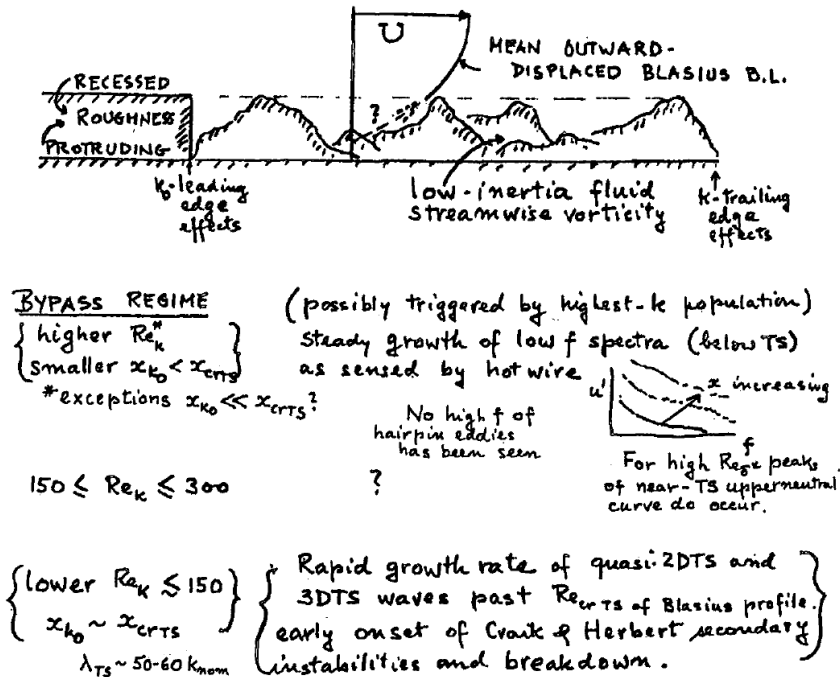 U
MEAN OUTWARD-
DISPLACED BLASIUS B.L.
RECESSED
ROUGHNESS
PROTRUDING
?
k₀-leading
edge
effects
low-inertia fluid
streamwise vorticity
k-trailing
edge
effects
BYPASS REGIME
higher Re*ₖ
smaller xₖ₀ < x꜀ᵣTS
*exceptions xₖ₀ << x꜀ᵣTS?
(possibly triggered by highest-k population)
steady growth of low f spectra (below TS)
as sensed by hot wire
No high f of
hairpin eddies
has been seen
u'
x increasing
f
For high Reδ* peaks
of near-TS upperneutral
curve do occur.
150 ≤ Reₖ ≤ 300
?
lower Reₖ ≲ 150
xₖ₀ ~ x꜀ᵣTS
λTS ~ 50-60 kₙₒₘ
Rapid growth rate of quasi 2DTS and
3DTS waves past Re꜀ᵣTS of Blasius profile.
early onset of Craik & Herbert secondary
instabilities and breakdown.